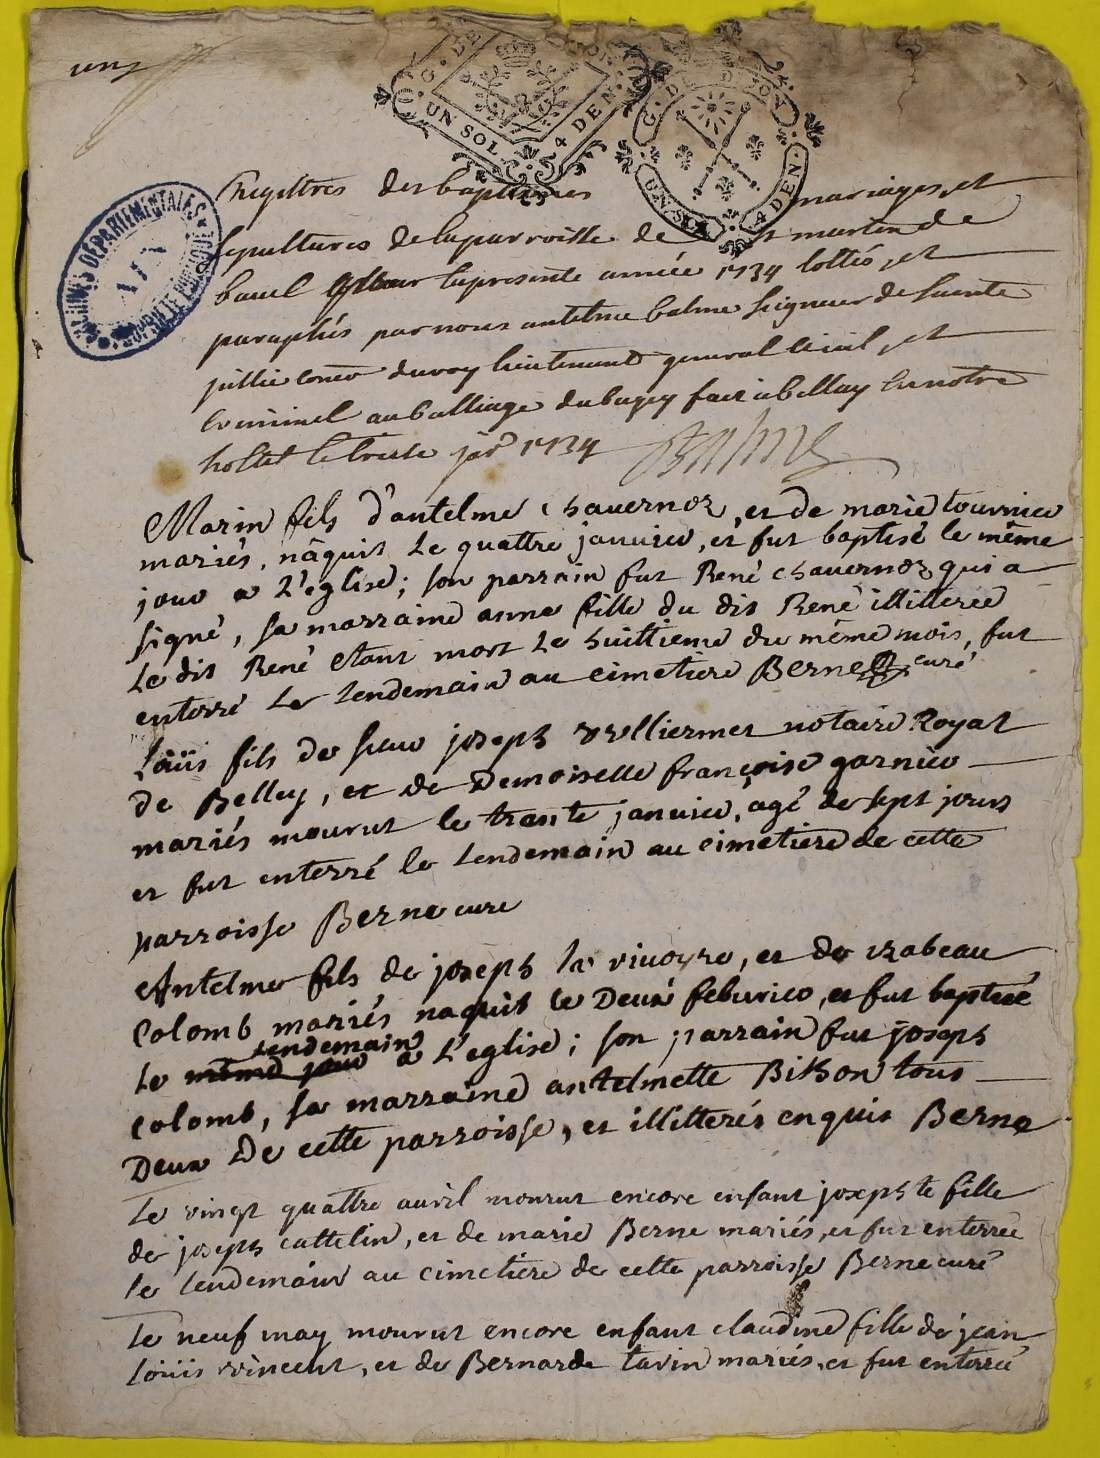 un
G. DE DIJON
UN SOL 4 DEN.
G. DE DIJON
UN SOL 4 DEN.
ARCHIVES DEPARTEMENTALES
AIN
Registres des baptemes mariages, et
sepultures de la parroisse de st martin de
bauel pour la presente année 1734 cottés, et
paraphés par nous antelme balme seigneur de sainte
jullie coner du roy lieutenant general civil, et
criminel au balliage du bugey fait a belley en notre
hostel le treise jar 1734 Balme
Marin fils d'antelme chauernoz, et de marie tournier
mariés, nâquit le quattre januier, et fut baptisé le même
jour a l'eglise; son parrain fut René chauernoz qui a
signé, sa marraine anne fille du dit René illitterée
Le dit René etant mort Le huittieme du même mois, fut
enterré Le Lendemain au cimetiere Berne curé
Loüis fils de sieur joseph vulliermet notaire Royal
de Belley, et de Demoiselle françoise garnier
mariés mourut le trente januier, agé de sept jours
et fut enterré le Lendemain au cimetiere de cette
parroisse Berne curé
Antelme fils de joseph la viuoyre, et de izabeau
Colomb mariés naquit le Deux feburier, et fut baptisé
Lendemain
Le même jour a L'eglise; son parrain fut joseph
colomb, sa marraine antelmette Bithon tous
Deux De cette parroisse, et illitterés enquis Berne
Le vingt quattre auril mourut encore enfant josephte fille
de joseph cattelin, et de marie Berne mariés, et fut enterrée
le Lendemain au cimetiere de cette parroisse Berne curé
Le neuf may mourut encore enfant claudine fille de jean
Loüis vincent, et de Bernarde tavin mariés, et fut enterrée